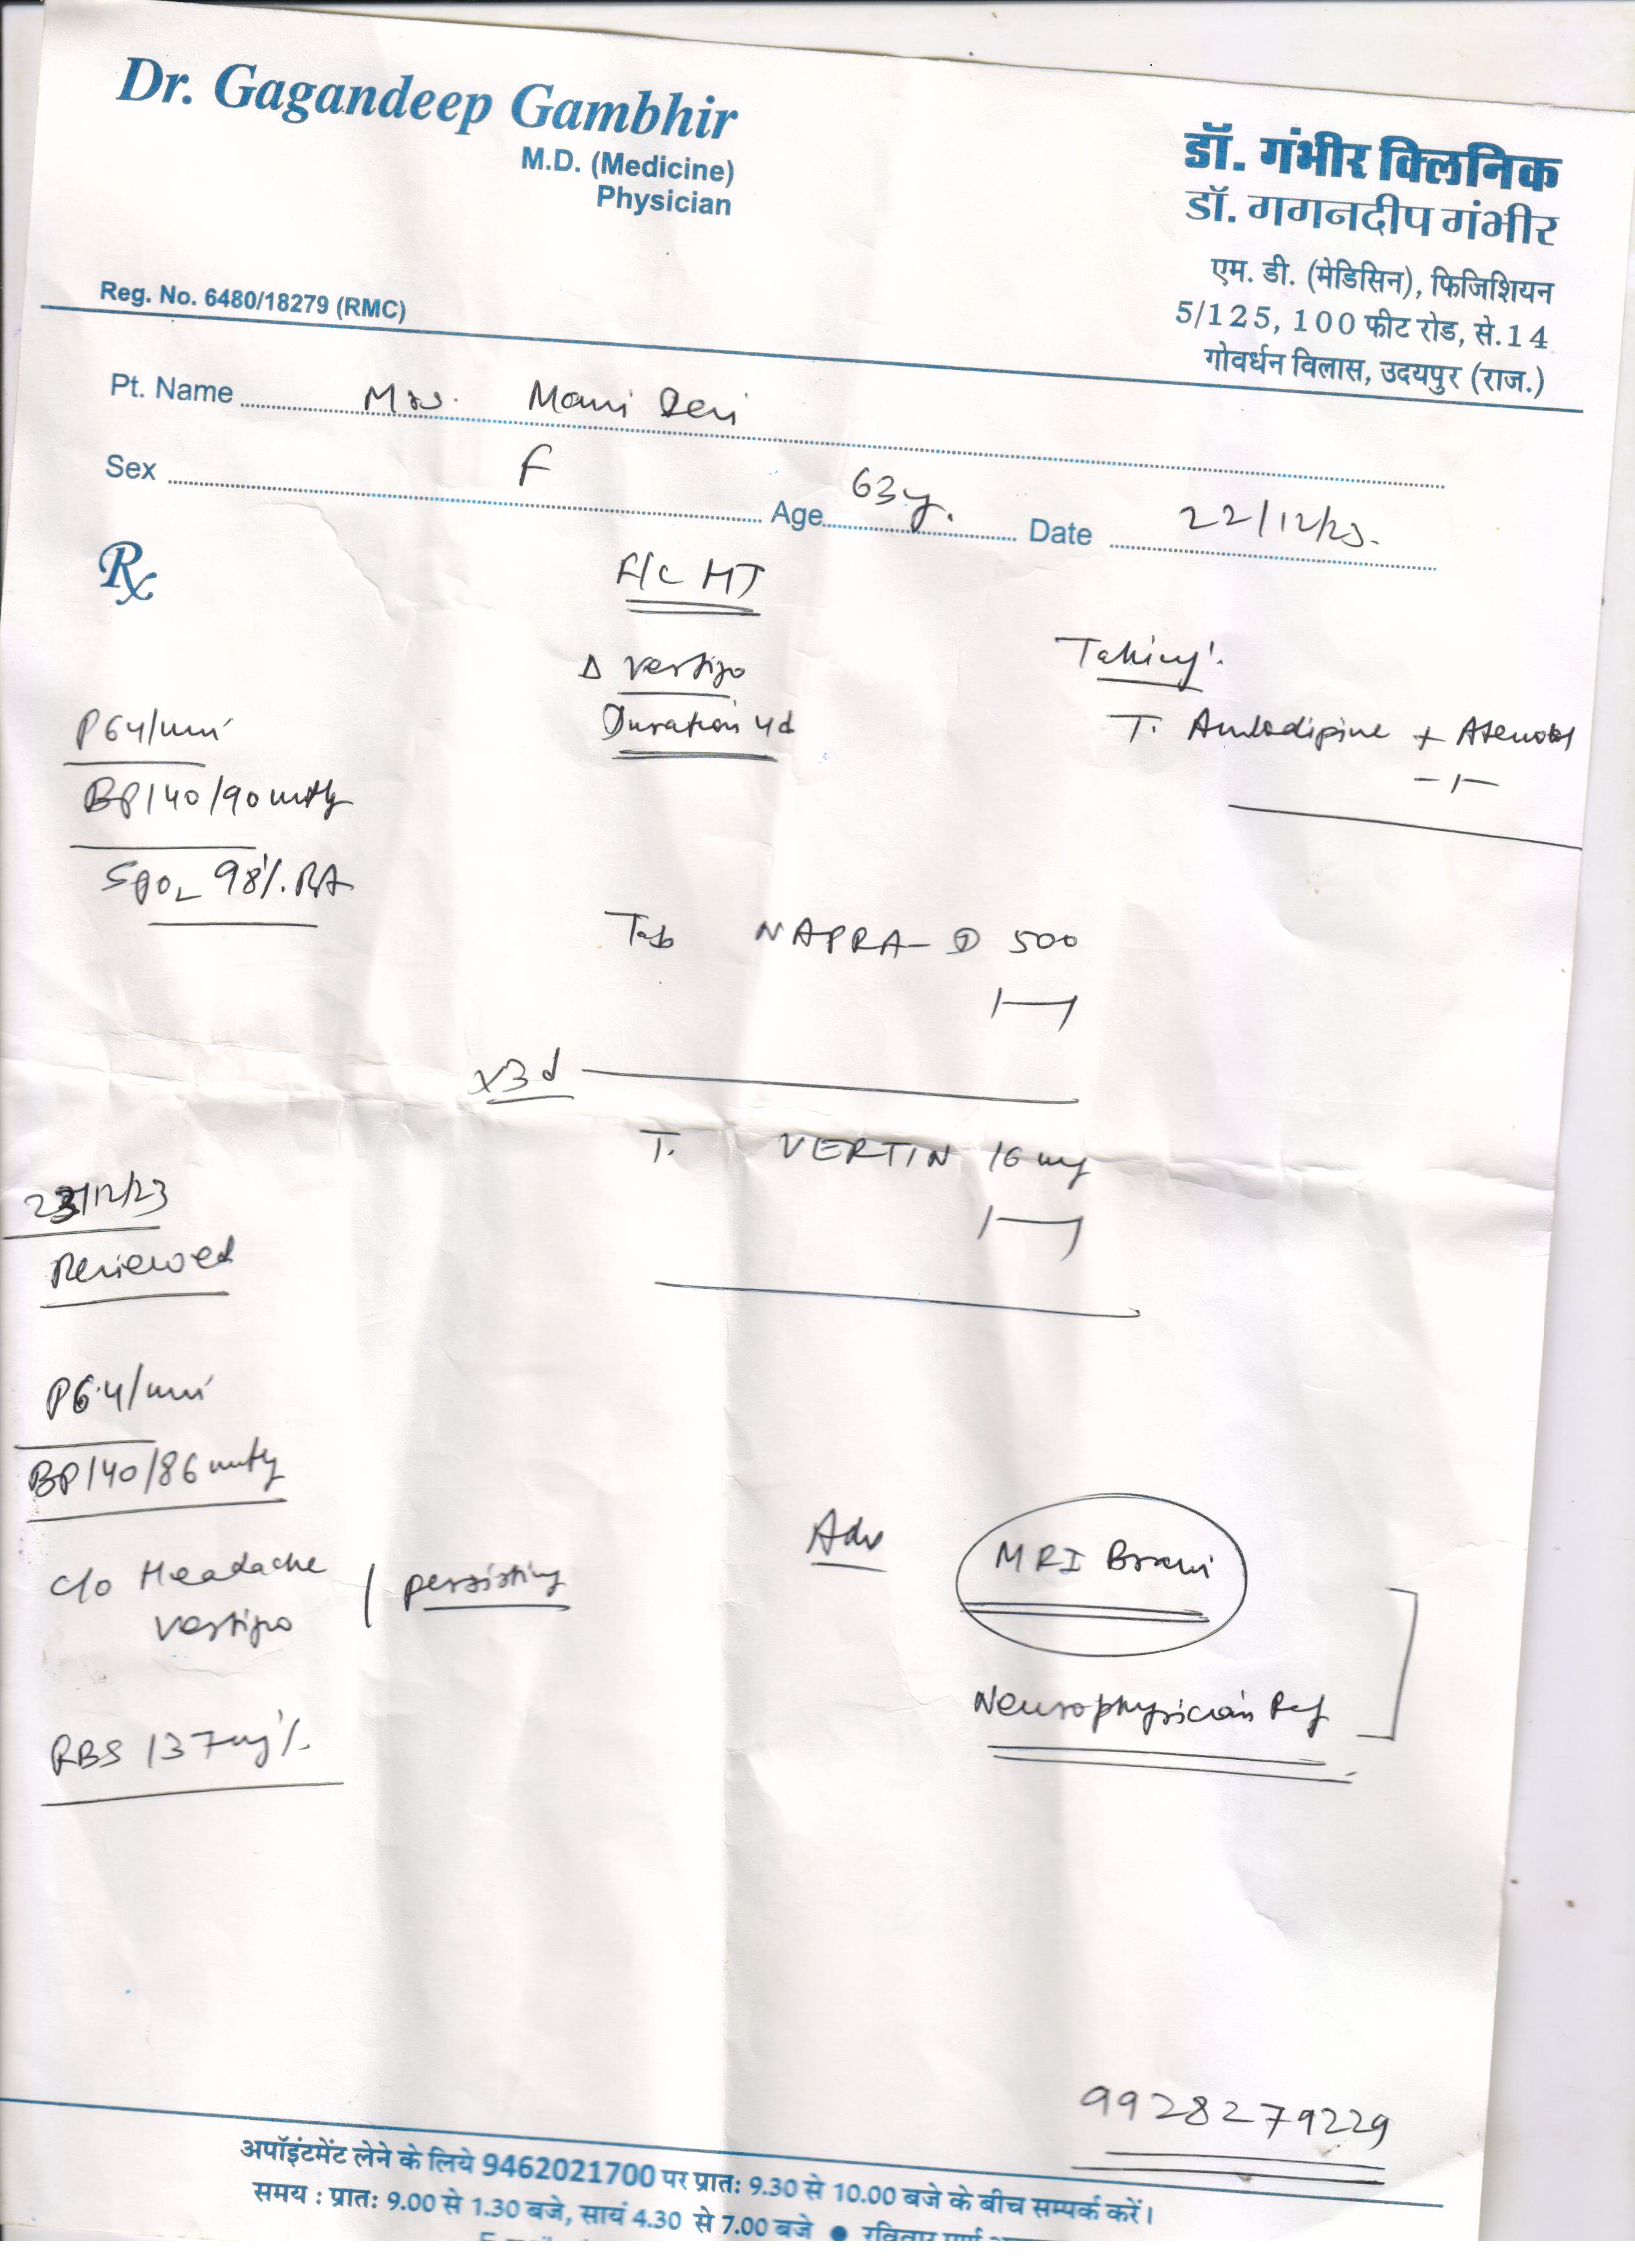 Dr. Gagandeep Gambhir
M.D. (Medicine)
Physician
Reg. No. 6480/18279 (RMC)
डॉ. गंभीर क्लिनिक
डॉ. गगनदीप गंभीर
एम. डी. (मेडिसिन), फिजिशियन
5/125, 100 फीट रोड, से.14
गोवर्धन विलास, उदयपुर (राज.)
Pt. Name Mrs. Mani Devi
Sex F Age 63y. Date 22/12/23.
Rx
K/C HT
Δ Vertigo
Duration 4d
Taking:
T. Amlodipine + Atenolol
-1-
P 64/min
BP 140/90 mmHg
SpO2 98%. RA
Tab NAPRA-D 500
1—1
x3d
T. VERTIN 16 mg
1—1
23/12/23
Reviewed
P 64/min
BP 140/86 mmHg
c/o Headache
Vertigo
persisting
RBS 137mg%.
Adv MRI Brain
Neurophysician Ref
9928279229
अपॉइंटमेंट लेने के लिये 9462021700 पर प्रातः 9.30 से 10.00 बजे के बीच सम्पर्क करें।
समय : प्रातः 9.00 से 1.30 बजे, सायं 4.30 से 7.00 बजे ● रविवार